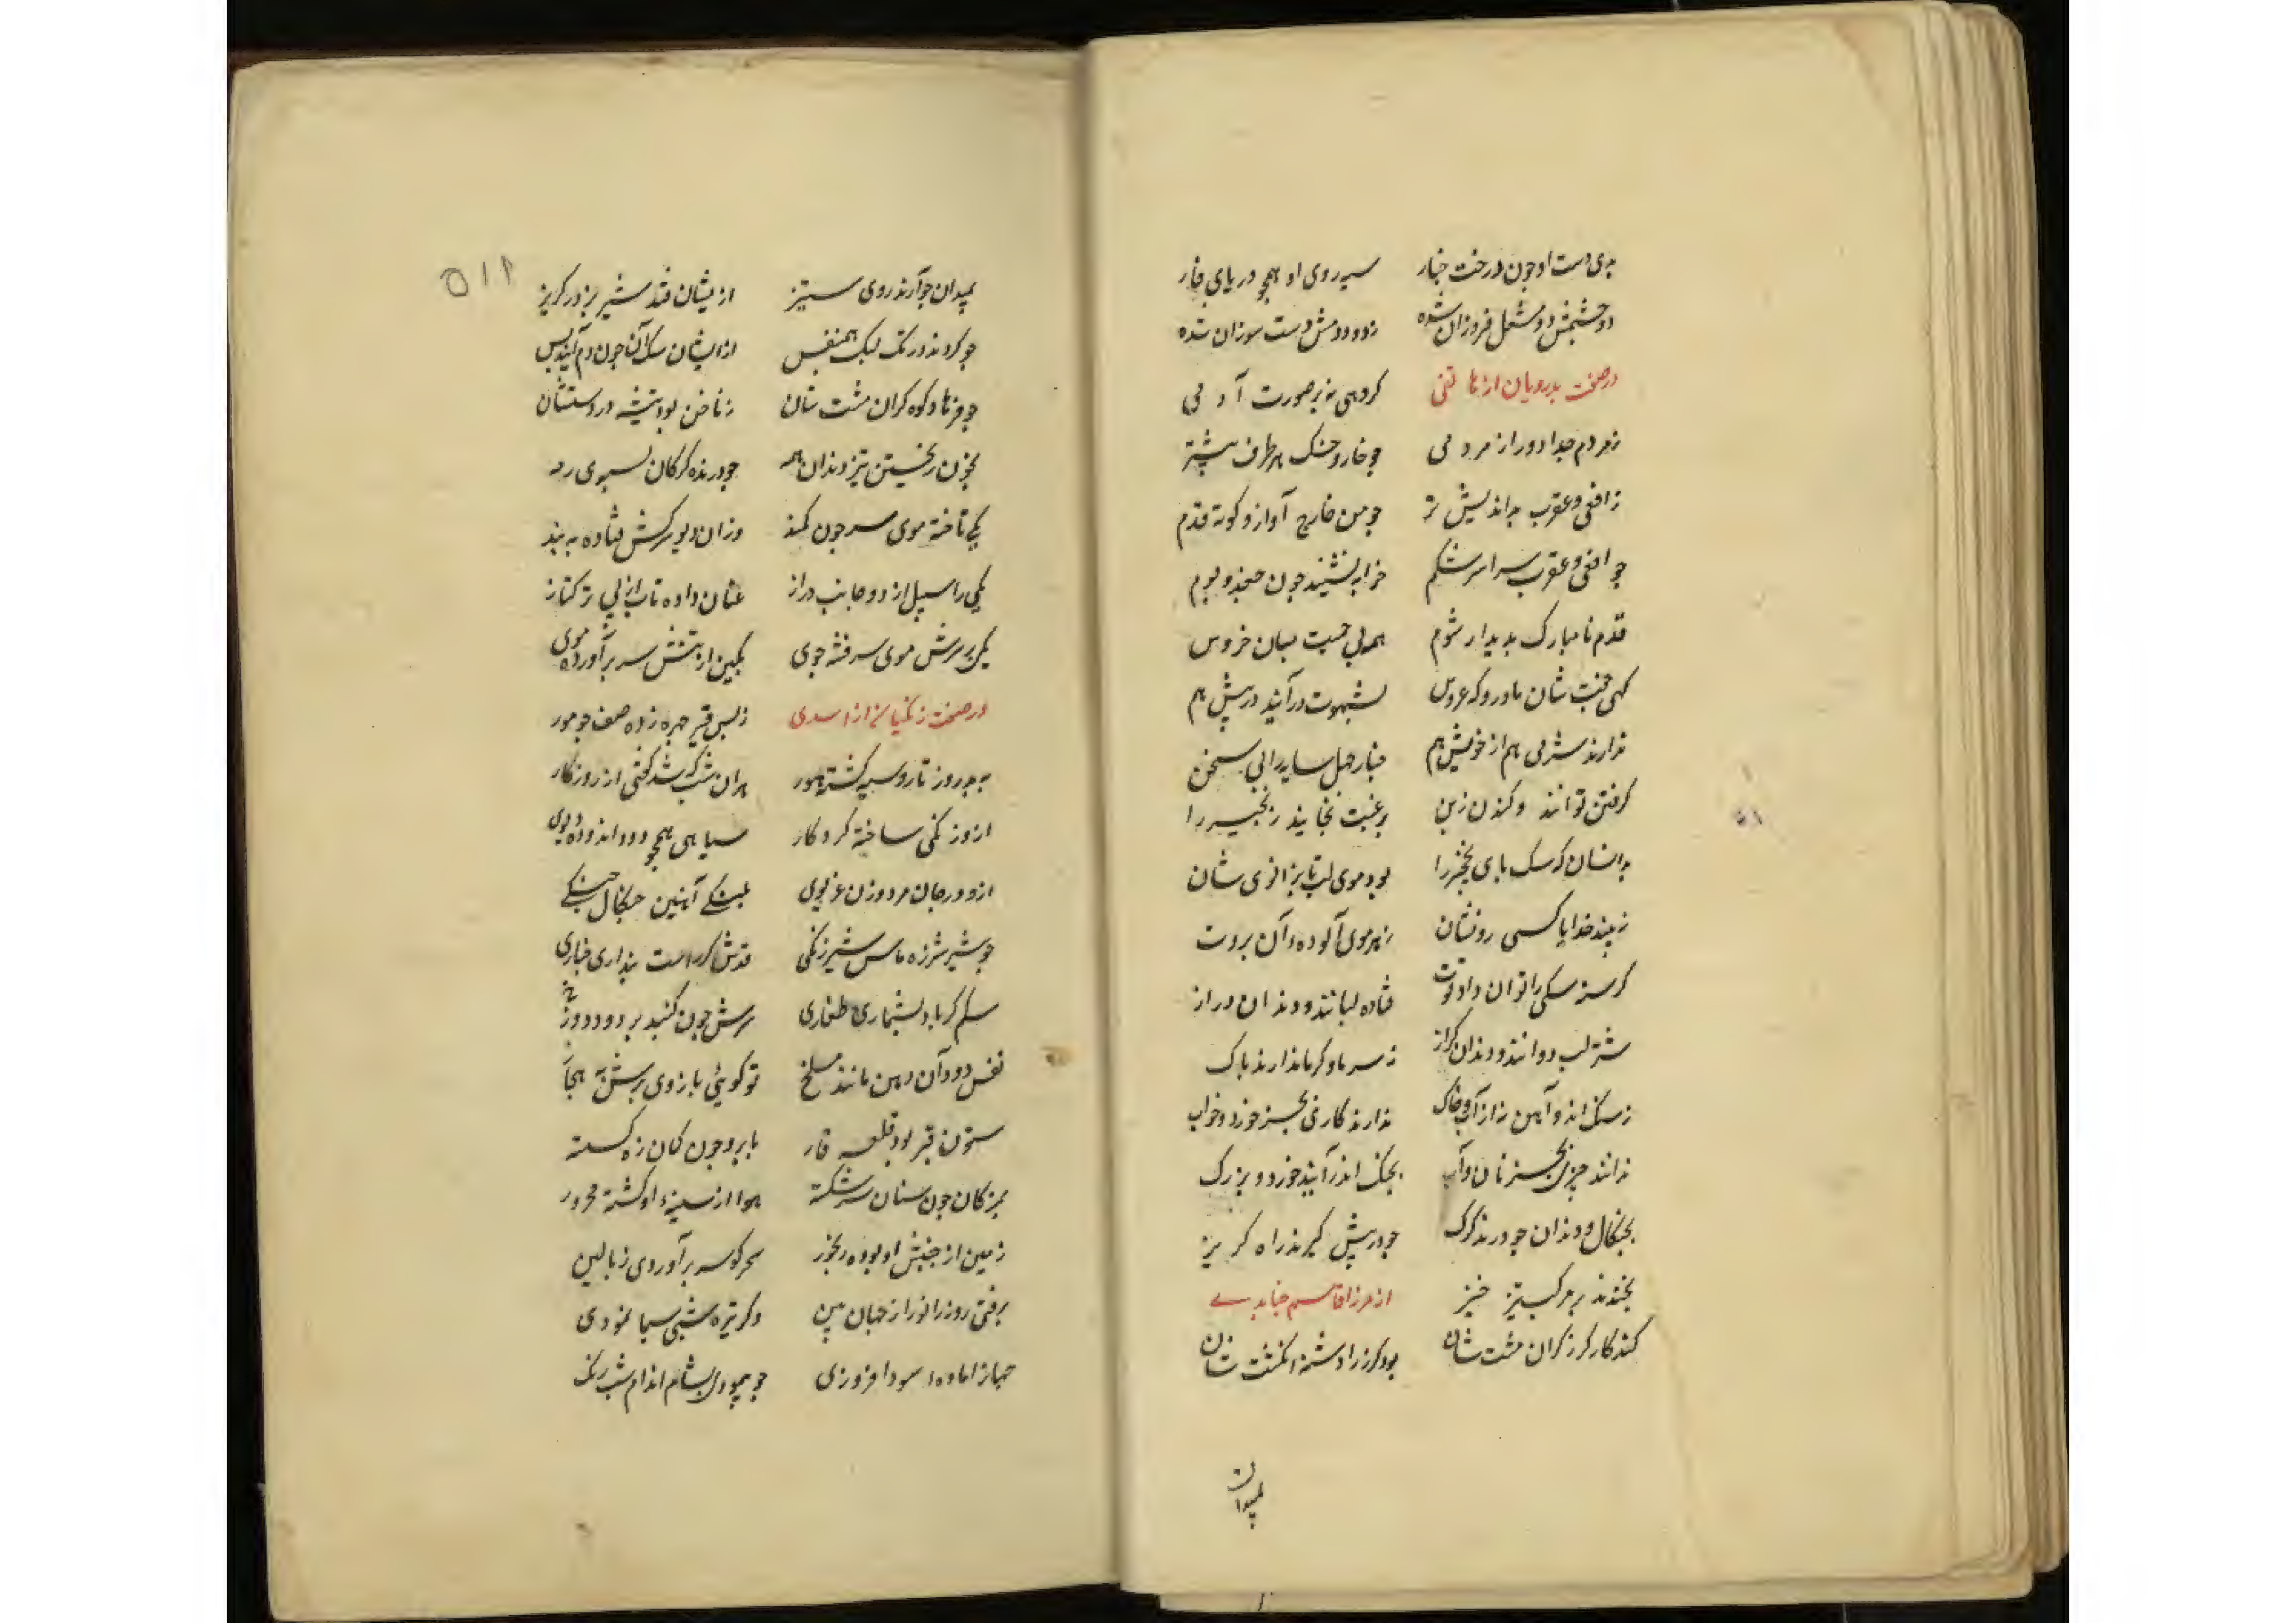 بدی دست او چون درخت چنار سیه روی او همچو دریای قار
دو چشمش دو مشعل فروزان شده ز دود دمش دست سوزان شده
در صفت بدرویان از هاتفی گروهی نه بر صورت آدمی
ز مردم جدا دور از مردمی چو خار و خسک هر طرف نیشتر
ز افعی و عقرب بداندیش تر چو من خارج آواز و کوته قدم
چو افعی و عقرب سراسر شکم خرابه نشیند چون جغد و بوم
قدم نامبارک بدیدار شوم همه بی بسان خروس
کهی شان مادر و که عروس بشهوت درآیند در پیش هم
ندارند شرمی هم از خویش هم سایه را بی سخن
گرفتن توانند و کندن زبن برغبت بخایند زنجیر را
بدانسان که سک پای نخجیر را بود موی لب تا بزانوی شان
نبیند خدایا کسی رویشان ز هر موی آلوده آن بروت
گرسنه سکی را توان داد قوت فتاده لبانند و دندان دراز
شتر لب دوانند و دندان گراز ز سرما و گرما ندارند باک
ز سنگ اند و آهن نه از آب و خاک ندارند کاری بجز خورد و خواب
ندانند چیزی بجز نان و آب بجنک اندر آیند خورد و بزرگ
بچنگال و دندان چو درنده گرگ چو در پیش گیرند راه گریز
بخندند بر مرک ستیز خیز از مرزا قاسم جنابدے
کند کار گرز گران مشت شان بود گرز را دشنه انگشت شان
بمیدان
۵۱۲
بمیدان چو آرند روی ستیز از یشان فتد شیر نر در گریز
چو گردند در تک سک همنفس ازایشان سک آن چون دم آیند پس
چو فرهاد کوه گران مشت شان ز ناخن بود تیشه در دستشان
بخون ریختن تیز دندان همه چو درنده گرگان بسوی رمه
یکی تاخته موی سر چون کمند وزان دیو سرکش فتاده به بند
یکی را سبیل از دو جانب دراز عنان داده تاب از پی ترکتاز
یکی بر سرش موی سر فتنه جوی بکین از تنش سر برآورده موی
در صفت زنگیان از اسدی ز بس قیر چهره زده صف چو مور
به بد روز تار و سیه گشته هور هر آن شب که شد گفتی از روزگار
ازو زنگی ساخته کردگار سیاهی همچو دود اندوده دیوی
ازو در جان مرد و زن غریوی پلنگے آهنین چنگال جنگے
چو شیر شرزه شیر زنگی قدش گر راست پنداری چناری
سلم بشماری طغاری سرش چون گنبد پر دود دوزخ
نفس دود آن دهن مانند مسلخ تو گوئی بازوی
ستون قیر بود قلعه قار بابرو چون کمان زه گسسته
بمژگان چون سنان سر شکسته هوا از سینه او گشته محرور
زمین از جنبش او بوده رنجور سحر گر سر برآوردی ز بالین
برفتی روز را نور از جهان بین وگر تیره شبی سیما نمودی
جهان را ماده سودا فزودی چو هیولی بشام اندام شب رنگ